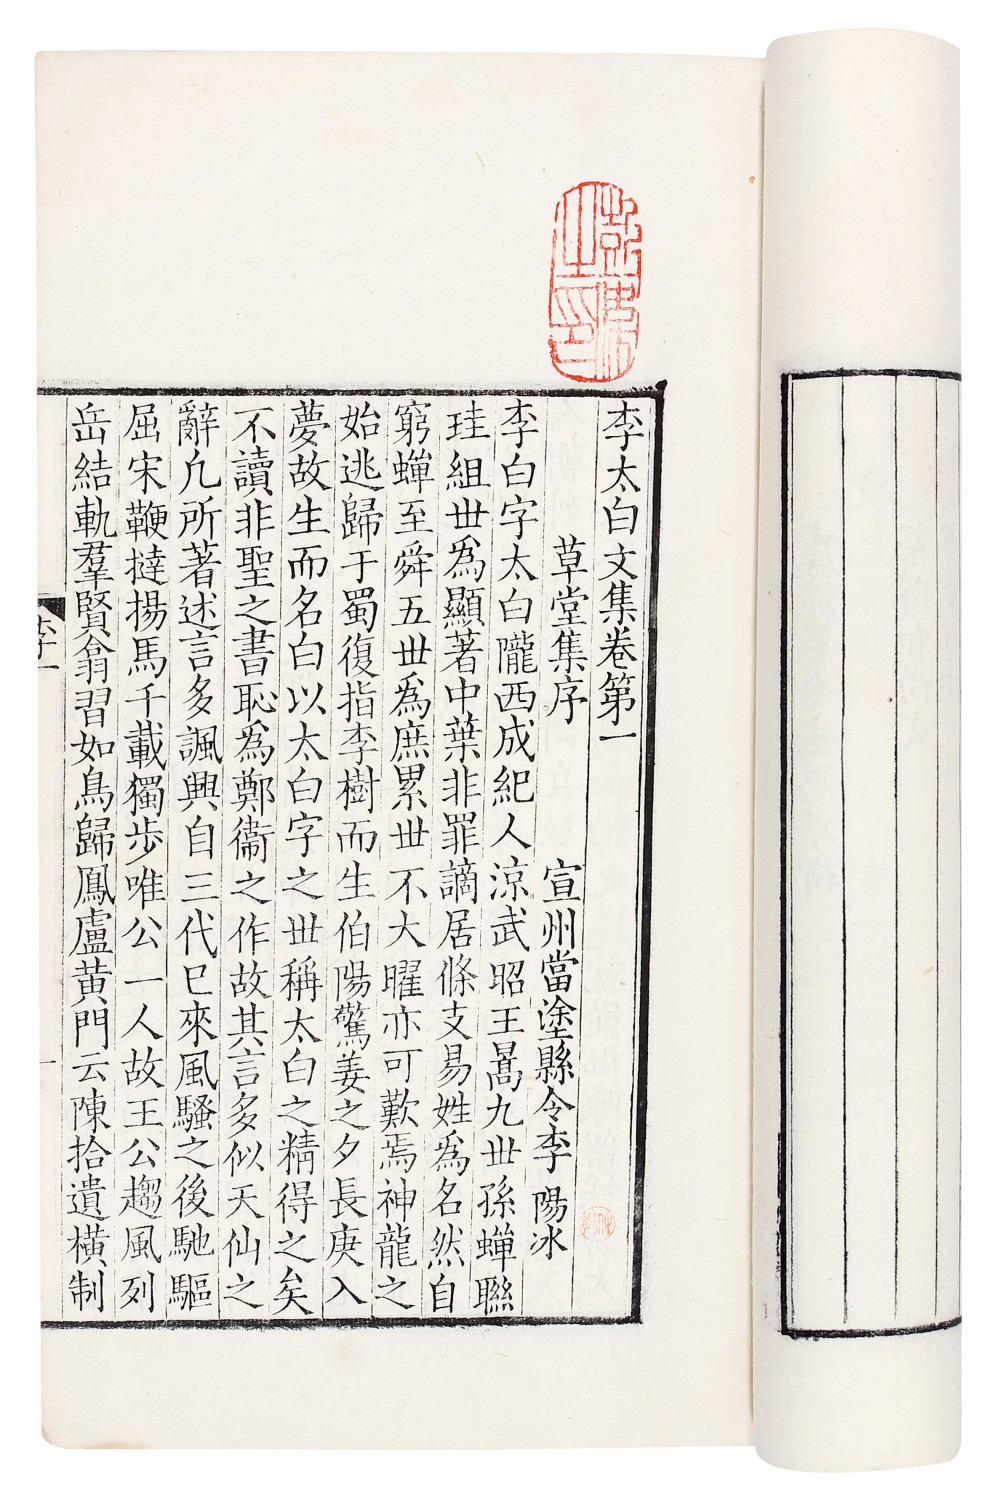 李太白文集卷第一
草堂集序
宣州當塗縣令李陽冰
李白字太白隴西成紀人涼武昭王暠九世孫蟬聯
珪組世爲顯著中葉非罪謫居條支易姓爲名然自
窮蟬至舜五世爲庶累世不大曜亦可歎焉神龍之
始逃歸于蜀復指李樹而生伯陽驚姜之夕長庚入
夢故生而名白以太白字之世稱太白之精得之矣
不讀非聖之書恥爲鄭衞之作故其言多似天仙之
辭凡所著述言多諷興自三代已來風騷之後馳驅
屈宋鞭撻揚馬千載獨步唯公一人故王公趨風列
岳結軌羣賢翕習如鳥歸鳳盧黃門云陳拾遺橫制
李一
一